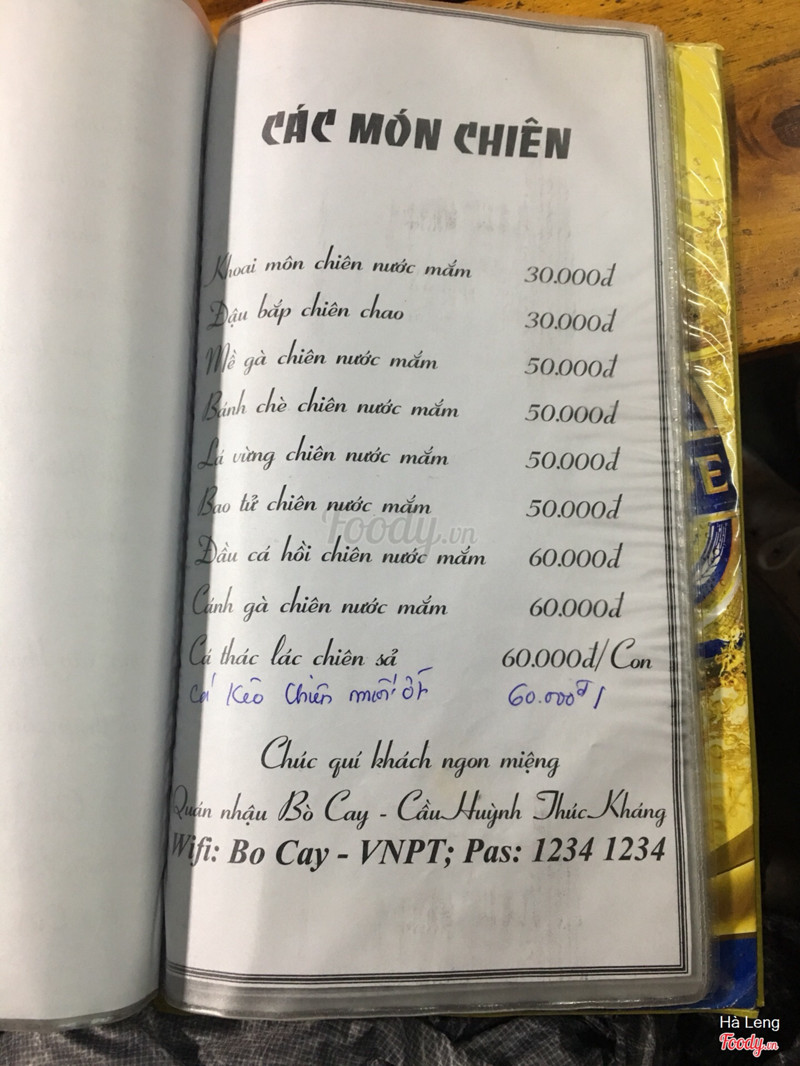 CÁC MÓN CHIÊN
Khoai môn chiên nước mắm 30.000đ
Đậu bắp chiên chao 30.000đ
Mề gà chiên nước mắm 50.000đ
Bánh chè chiên nước mắm 50.000đ
Lá vừng chiên nước mắm 50.000đ
Bao tử chiên nước mắm 50.000đ
Foody.vn
Đầu cá hồi chiên nước mắm 60.000đ
Cánh gà chiên nước mắm 60.000đ
Cá thác lác chiên sả 60.000đ/Con
Cá Kèo Chiên muối ớt 60.000đ/
Chúc quí khách ngon miệng
Quán nhậu Bò Cay - Cầu Huỳnh Thúc Kháng
Wifi: Bo Cay - VNPT; Pas: 1234 1234
E
Hà Leng
Foody.vn